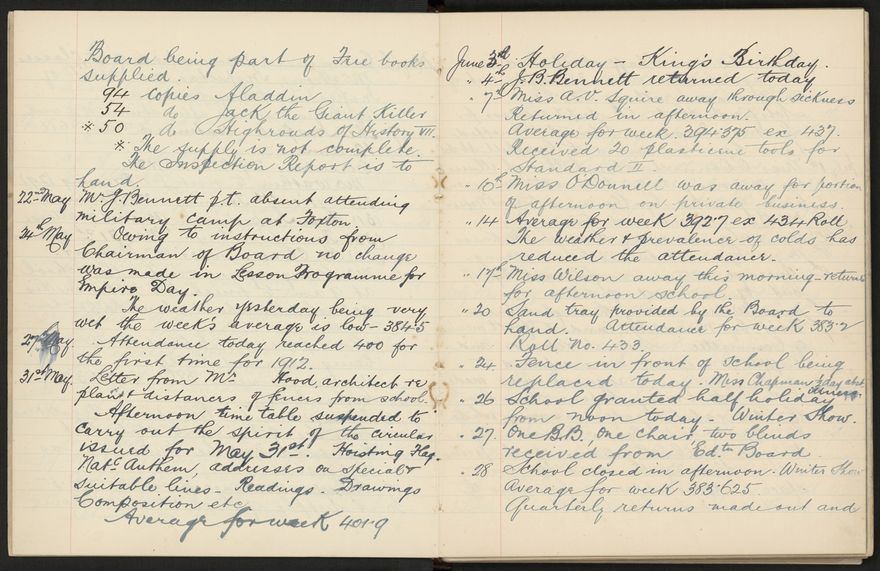 Board being part of Free books
supplied.
94 copies Aladdin
54 do Jack the Giant Killer
* 50 do Highroads of History VII.
* The supply is not complete.
The Inspection Report is to
hand.
22nd May Mr J. Bennett p.t. absent attending
military camp at Foxton.
24th May Owing to instructions from
Chairman of Board no change
was made in Lesson Programme for
Empire Day.
The weather yesterday being very
wet the week's average is low - 384.5
27th May. Attendance today reached 400 for
the first time for 1912.
31st May. Letter from Mr Hood, architect re
plan & distances of fences from school.
Afternoon time table suspended to
carry out the spirit of the circular
issued for May 31st. Hoisting Flag.
Natl Anthem, addresses on Special &
suitable lines - Readings. Drawings
Composition etc
Average for week 401.9
June 3rd Holiday - King's Birthday.
" 4th J.B. Bennett returned today
" 7th Miss A.V. Squire away through sickness
Returned in afternoon.
Average for week. 394.375 ex 437.
Received 20 plasticine tools for
Standard II.
" 10th Miss O'Donnell was away for portion
of afternoon on private business.
" 14 Average for week 392.7 ex 434 Roll
The weather & prevalence of colds has
reduced the attendance.
" 17th Miss Wilson away this morning - returned
for afternoon school.
" 20 Sand tray provided by the Board to
hand. Attendance for week 383.2
Roll No. 433.
" 24. Fence in front of school being
replaced today - Miss Chapman ½ day abst
illness
" 26 School granted half holiday
from noon today - Winter Show.
" 27. One B.B. One chair - two blinds
received from Edtn Board.
" 28 School closed in afternoon. Winter Show
Average for week 383.625.
Quarterly returns made out and